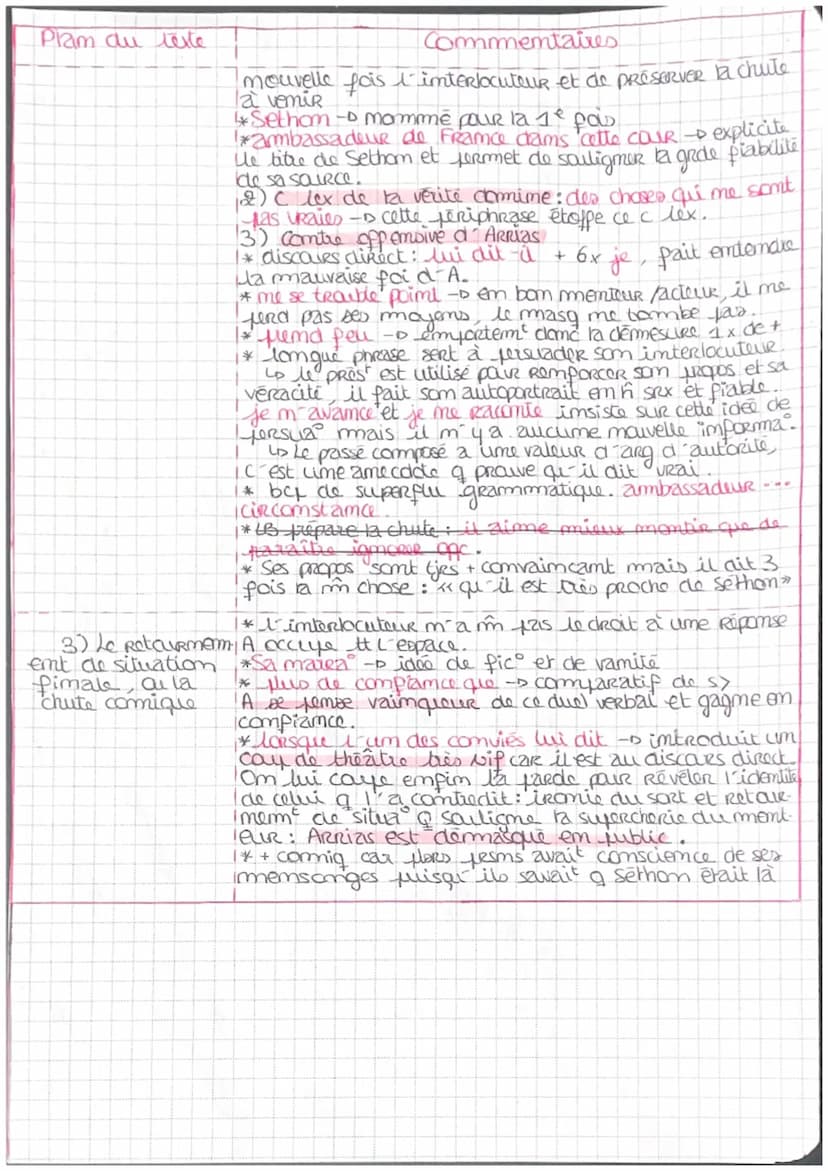 Plan du texte
Commentaires
nouvelle fois l'interlocuteur et de préserver la chute
à venir
* Sethon -> nommé pour la 1e fois
* ambassadeur de France dans cette cour -> explicite
le titre de Sethon et permet de souligner la grde fiabilité
de sa source.
2) C lex de la vérité domine : des choses qui ne sont
pas vraies -> cette périphrase étoffe ce c lex.
3) Contre offensive d'Arrias
* discours direct : lui dit-il + 6x je, fait entendre
la mauvaise foi d'A.
* ne se trouble point -> en bon menteur/acteur, il ne
perd pas ses moyens, le masq ne tombe pas.
* prend feu -> emportemt donc la démesure 1x de +
* longue phrase sert à persuader son interlocuteur.
↳ le prést est utilisé pour renforcer son propos et sa
véracité, il fait son autoportrait en h srx et fiable.
je m'avance et je ne raconte insiste sur cette idée de
persua° mais il n'y a aucune nouvelle informa°.
↳ Le passé composé a une valeur d'arg d'autorité,
c'est une anecdote q prouve qu'il dit vrai.
* bcp de superflu grammatique. ambassadeur ...
circonstance
* Ls prépare la chute : il aime mieux mentir que de
paraître ignorer qqc.
* Ses propos sont tjrs + convaincant mais il dit 3
fois la m̂ chose : « qu'il est très proche de séthon »
3) Le retournem
ent de situation
finale, ou la
chute comique
* l'interlocuteur n'a m̂ pas le droit à une réponse
A occupe tt l'espace.
* Sa narra° -> idée de fic° et de vanité
* plus de confiance que -> comparatif de s>
A se pense vainqueur de ce duel verbal et gagne en
confiance.
* lorsque l'un des conviés lui dit -> introduit un
coup de théâtre très vif car il est au discours direct.
On lui coupe enfin la parole pour révéler l'identité
de celui q l'a contredit : ironie du sort et retour-
nemt de situa° q souligne la supercherie du ment-
eur : Arrias est démasqué en public.
* + comiq car plrs persns avait conscience de ses
mensonges puisqu'ils savait q séthon était là